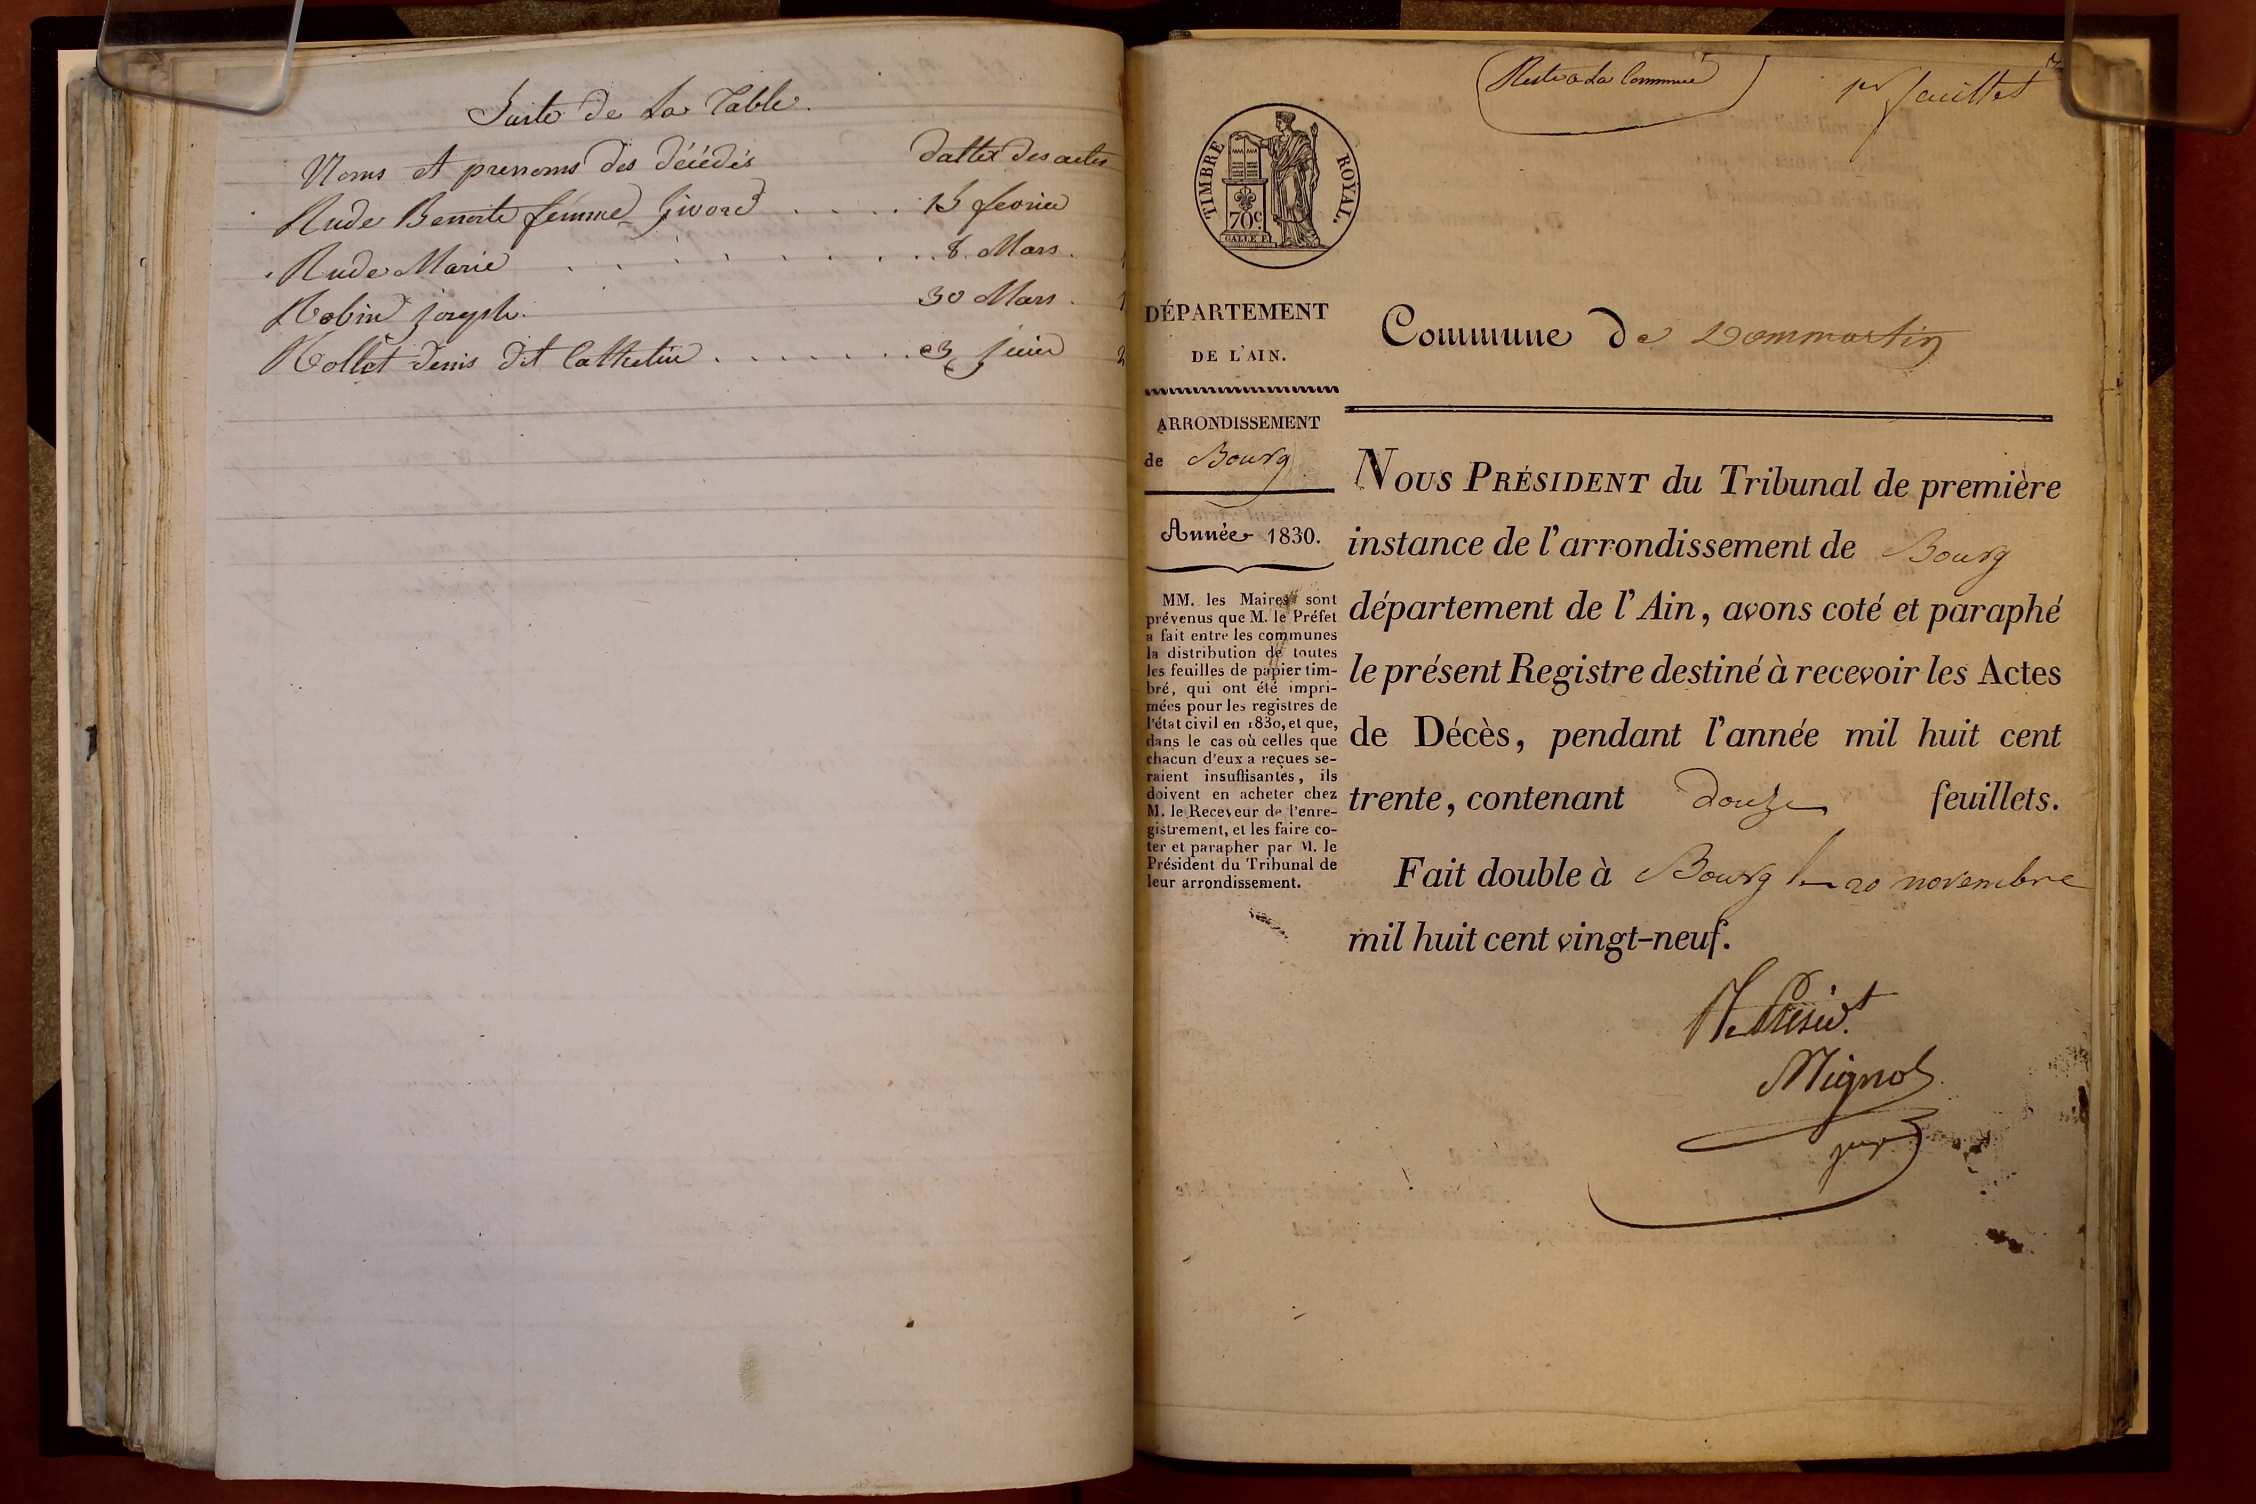 Suite de La Table.
Noms et prenoms des décédés dattes des actes
Rude Benoite femme Givord . . . . 15 fevrier
Rude Marie . . . . . . . . . 8 Mars.
Robin joseph. 30 Mars.
Rollet denis dit Cathelin . . . . . . . 3 juin
Reste a La Commune
1er feuillet
TIMBRE ROYAL.
70c.
DÉPARTEMENT
DE L'AIN.
Commune de Dommartin
ARRONDISSEMENT
de Bourg
Année 1830.
MM. les Maires sont
prévenus que M. le Préfet
a fait entre les communes
la distribution de toutes
les feuilles de papier tim-
bré, qui ont été impri-
mées pour les registres de
l'état civil en 1830, et que,
dans le cas où celles que
chacun d'eux a reçues se-
raient insuffisantes, ils
doivent en acheter chez
M. le Receveur de l'enre-
gistrement, et les faire co-
ter et parapher par M. le
Président du Tribunal de
leur arrondissement.
NOUS PRÉSIDENT du Tribunal de première
instance de l'arrondissement de Bourg
département de l'Ain, avons coté et paraphé
le présent Registre destiné à recevoir les Actes
de Décès, pendant l'année mil huit cent
trente, contenant douze feuillets.
Fait double à Bourg le 20 novembre
mil huit cent vingt-neuf.
Le Présidt.
Mignot
juge